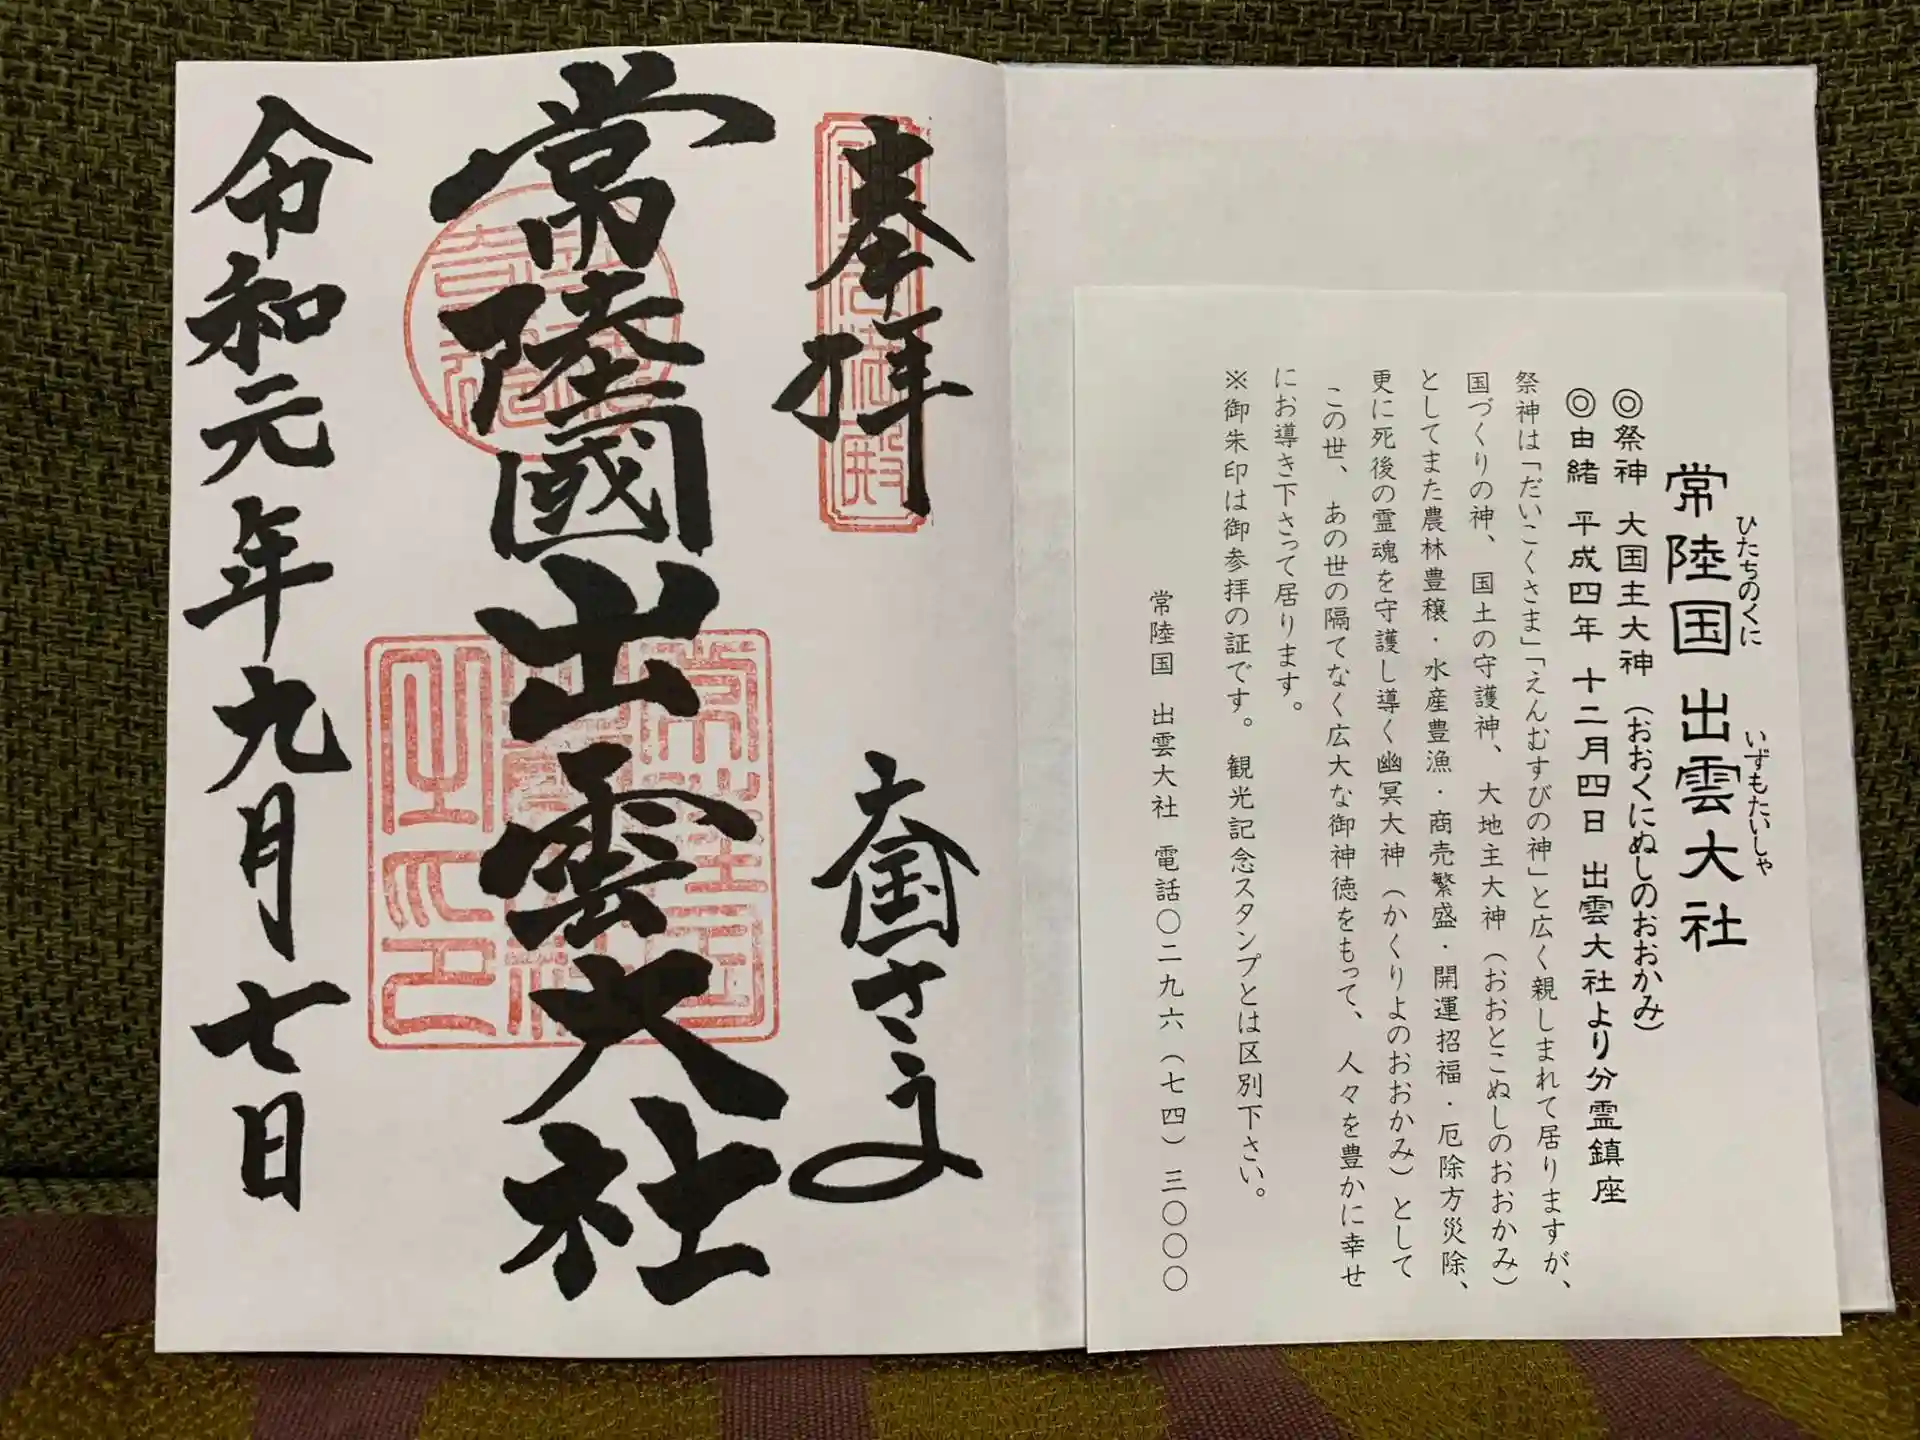 常陸国 出雲大社
ひたちのくに いずもたいしゃ
◎祭神 大国主大神（おおくにぬしのおおかみ）
◎由緒 平成四年 十二月四日 出雲大社より分霊鎮座
祭神は「だいこくさま」「えんむすびの神」と広く親しまれて居りますが、
国づくりの神、国土の守護神、大地主大神（おおとこぬしのおおかみ）
としてまた農林豊穣・水産豊漁・商売繁盛・開運招福・厄除方災除、
更に死後の霊魂を守護し導く幽冥大神（かくりよのおおかみ）として
この世、あの世の隔てなく広大な御神徳をもって、人々を豊かに幸せ
にお導き下さって居ります。
※御朱印は御参拝の証です。観光記念スタンプとは区別下さい。
常陸国 出雲大社 電話〇二九六（七四）三〇〇〇
奉拝
大国さま
常陸國出雲大社
令和元年九月七日